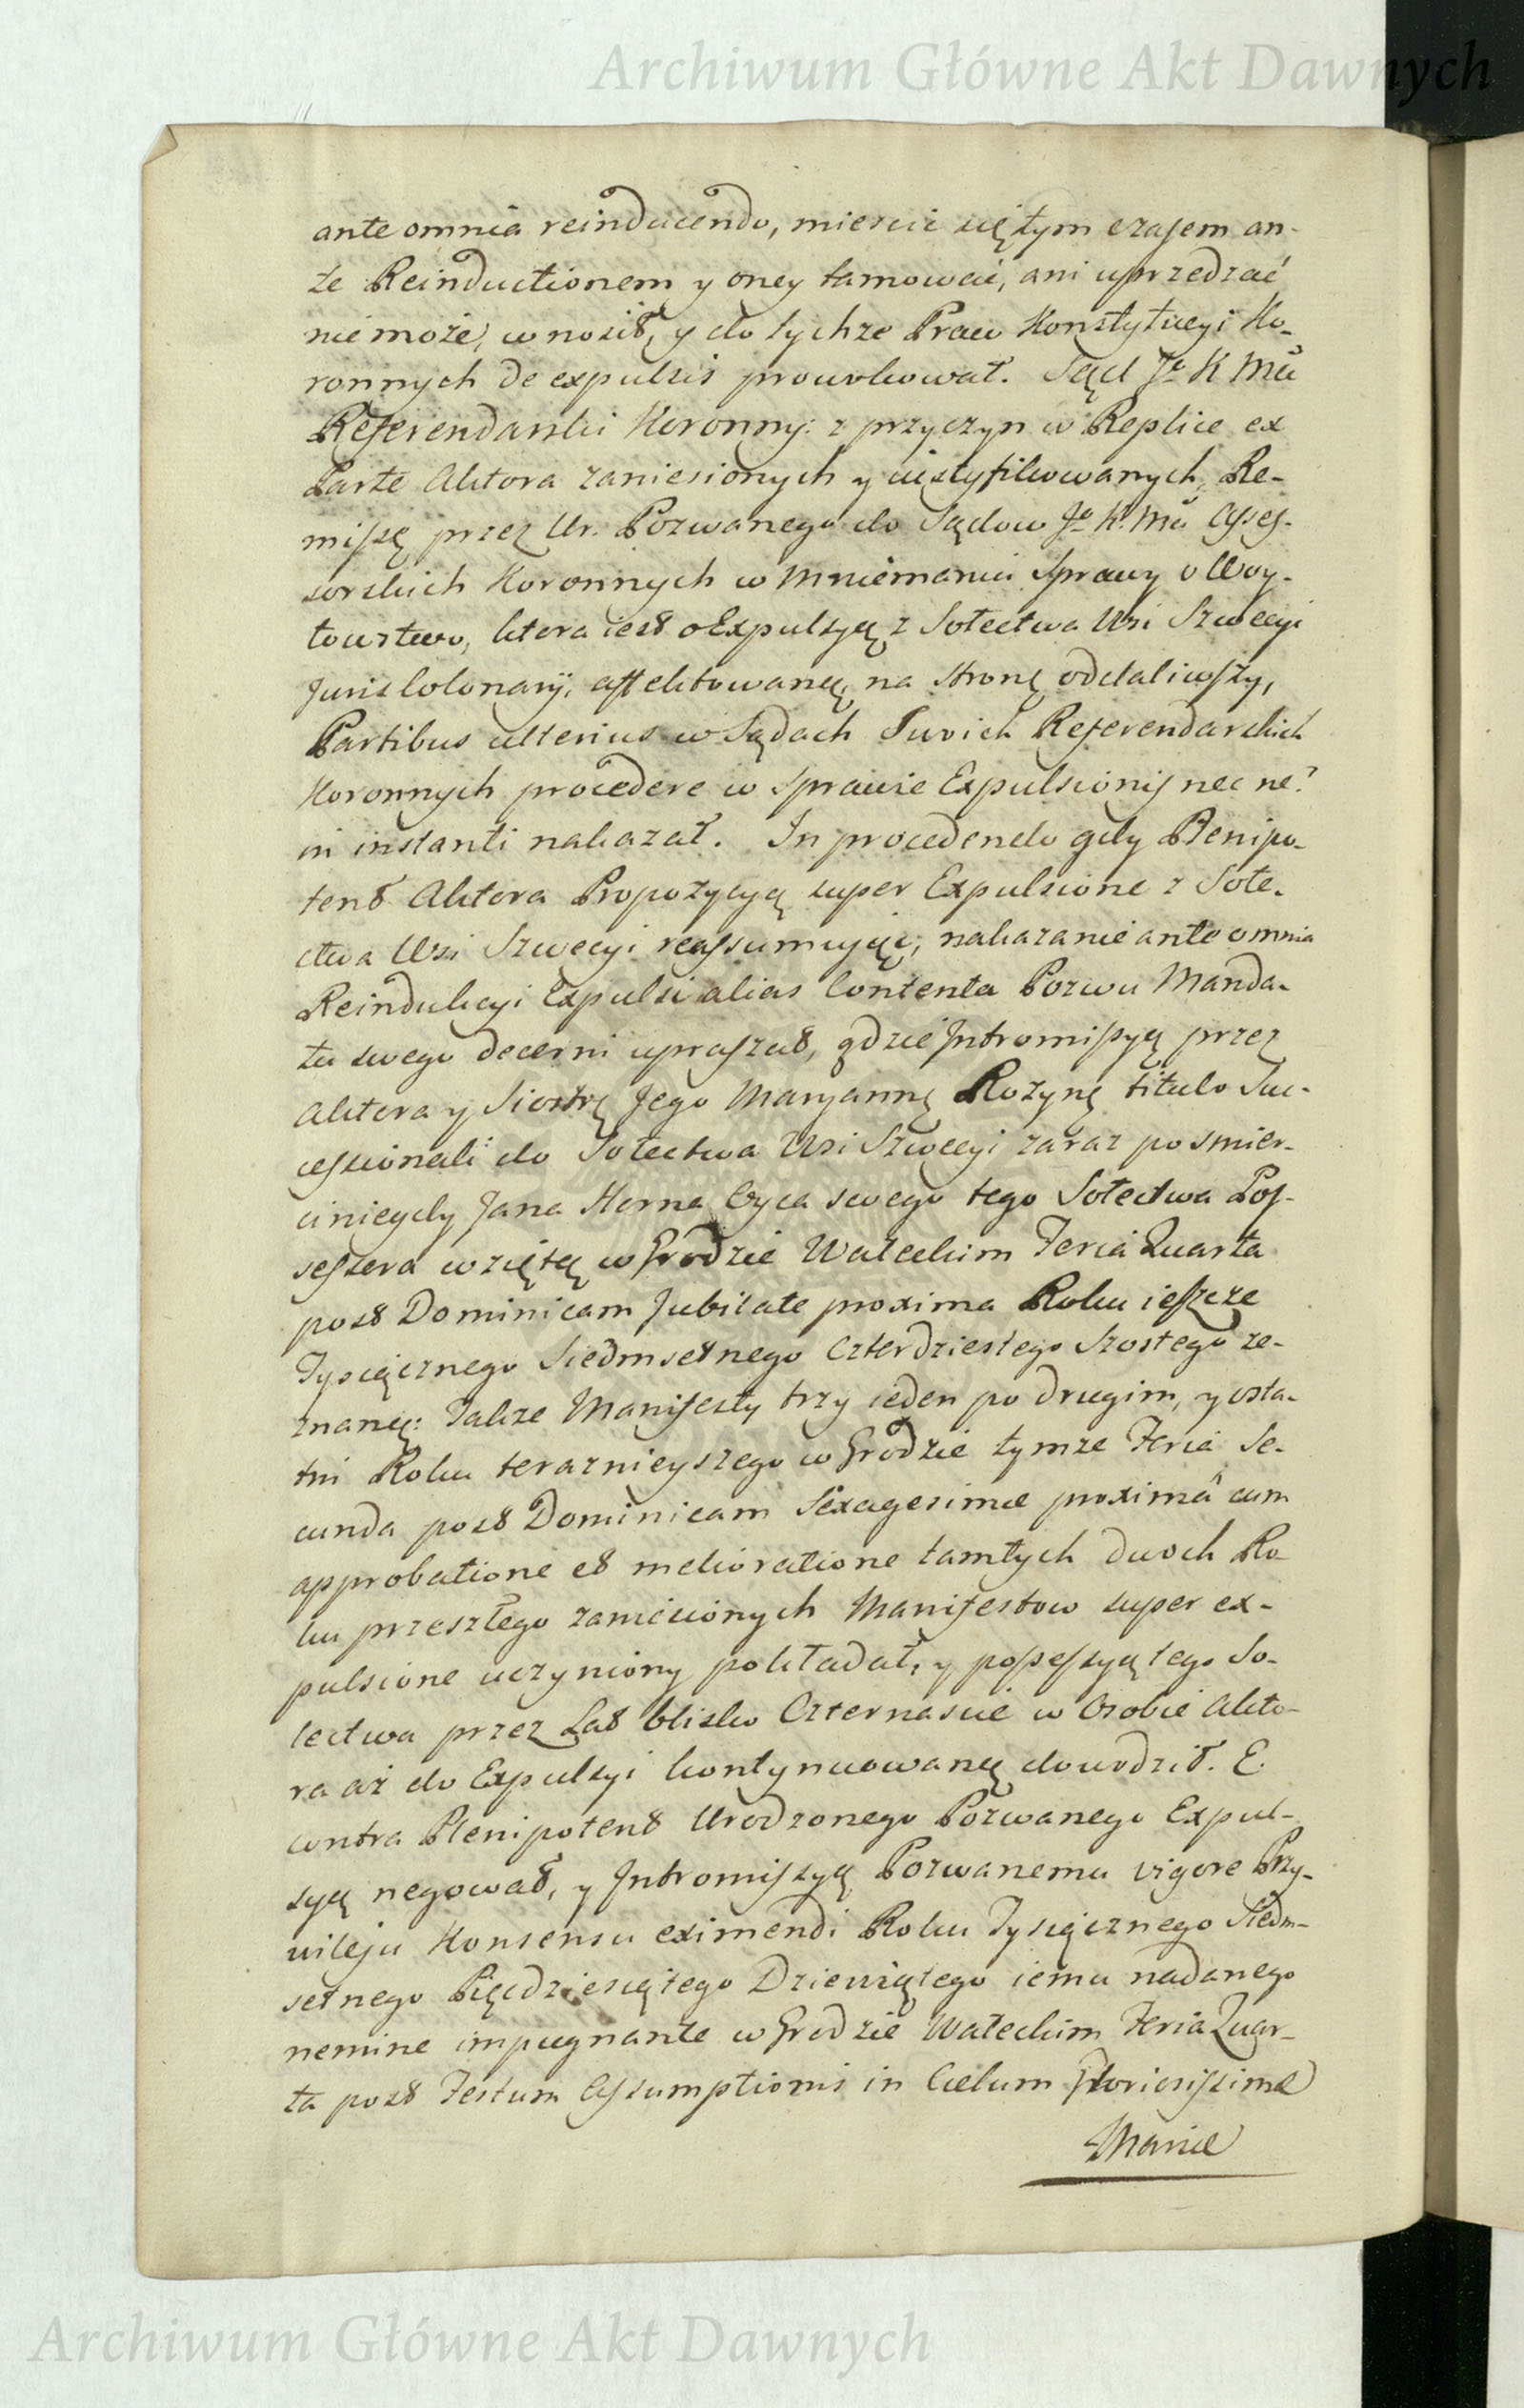 Archiwum Główne Akt Dawnych
ante omnia reinducendo, mieścić się tym czasem an-
te Reinductionem y oney tamować, ani uprzedzać
nie może, wnosił, y do tychże Praw Konstytucyi Ko-
ronnych de expulsis prowokował. Sąd Jo K Mci
Referendarski Koronny: z przyczyn w Replice ex
Parte Aktora zaniesionych y iustyfikowanych, Re-
missę przez Ur. Pozwanego do Sądow Jo K. Mci Asses-
sorskich Koronnych w mniemaniu Sprawy o Woy-
towstwo, ktora iest o Expulsyą z Sołectwa Wsi Szwecyi
Juris Colonarij, affektowaną, na stronę oddaliwszy,
Partibus ulterius w Sądach Swoich Referendarskich
Koronnych procedere w sprawie Expulsionis nec ne?
in instanti nakazał. In procedendo gdy Plenipo-
tent Aktora Propozycyą super Expulsione z Sołe-
ctwa Wsi Szwecyi reassumuiąc, nakazanie ante omnia
Reindukcyi Expulsi alias Contenta Pozwu Manda-
tu swego decerni upraszał, gdzie Intromissyą przez
Aktora y Siostrę Jego Maryannę Rozynę titulo Suc-
cessionali do Sołectwa Wsi Szwecyi zaraz po śmier-
ci niegdy Jana Horna Oyca swego tego Sołectwa Pos-
sessera wziętą w Grodzie Wałeckim Feria Quarta
post Dominicam Jubilate proxima Roku ieszcze
Tysiącznego Siedmsetnego Czterdziestego Szostego ze-
znaną: Także Manifesty trzy ieden po drugim, y osta-
tni Roku teraznieyszego w Grodzie tymże Feria Se-
cunda post Dominicam Sexagesimæ proximâ cum
approbatione et melioratione tamtych dwoch Ro-
ku przeszłego zaniesionych Manifestow super ex-
pulsione uczyniony pokładał, y possessyą tego So-
lectwa przez Lat blisko Czternascie w Osobie Akto-
ra aż do Expulsyi kontynuowaną dowodził. E.
contra Plenipotent Urodzonego Pozwanego Expul-
syą negował, y Intromissyą Pozwanemu vigore Przy-
wileju Konsensu eximendi Roku Tysiącznego Siedm-
setnego Pięćdziesiątego Dziewiątego iemu nadanego
nemine impugnante w Grodzie Wałeckim Feria Quar-
ta post Festum Assumptionis in Cælum Gloriosissimæ
Mariæ
Archiwum Główne Akt Dawnych